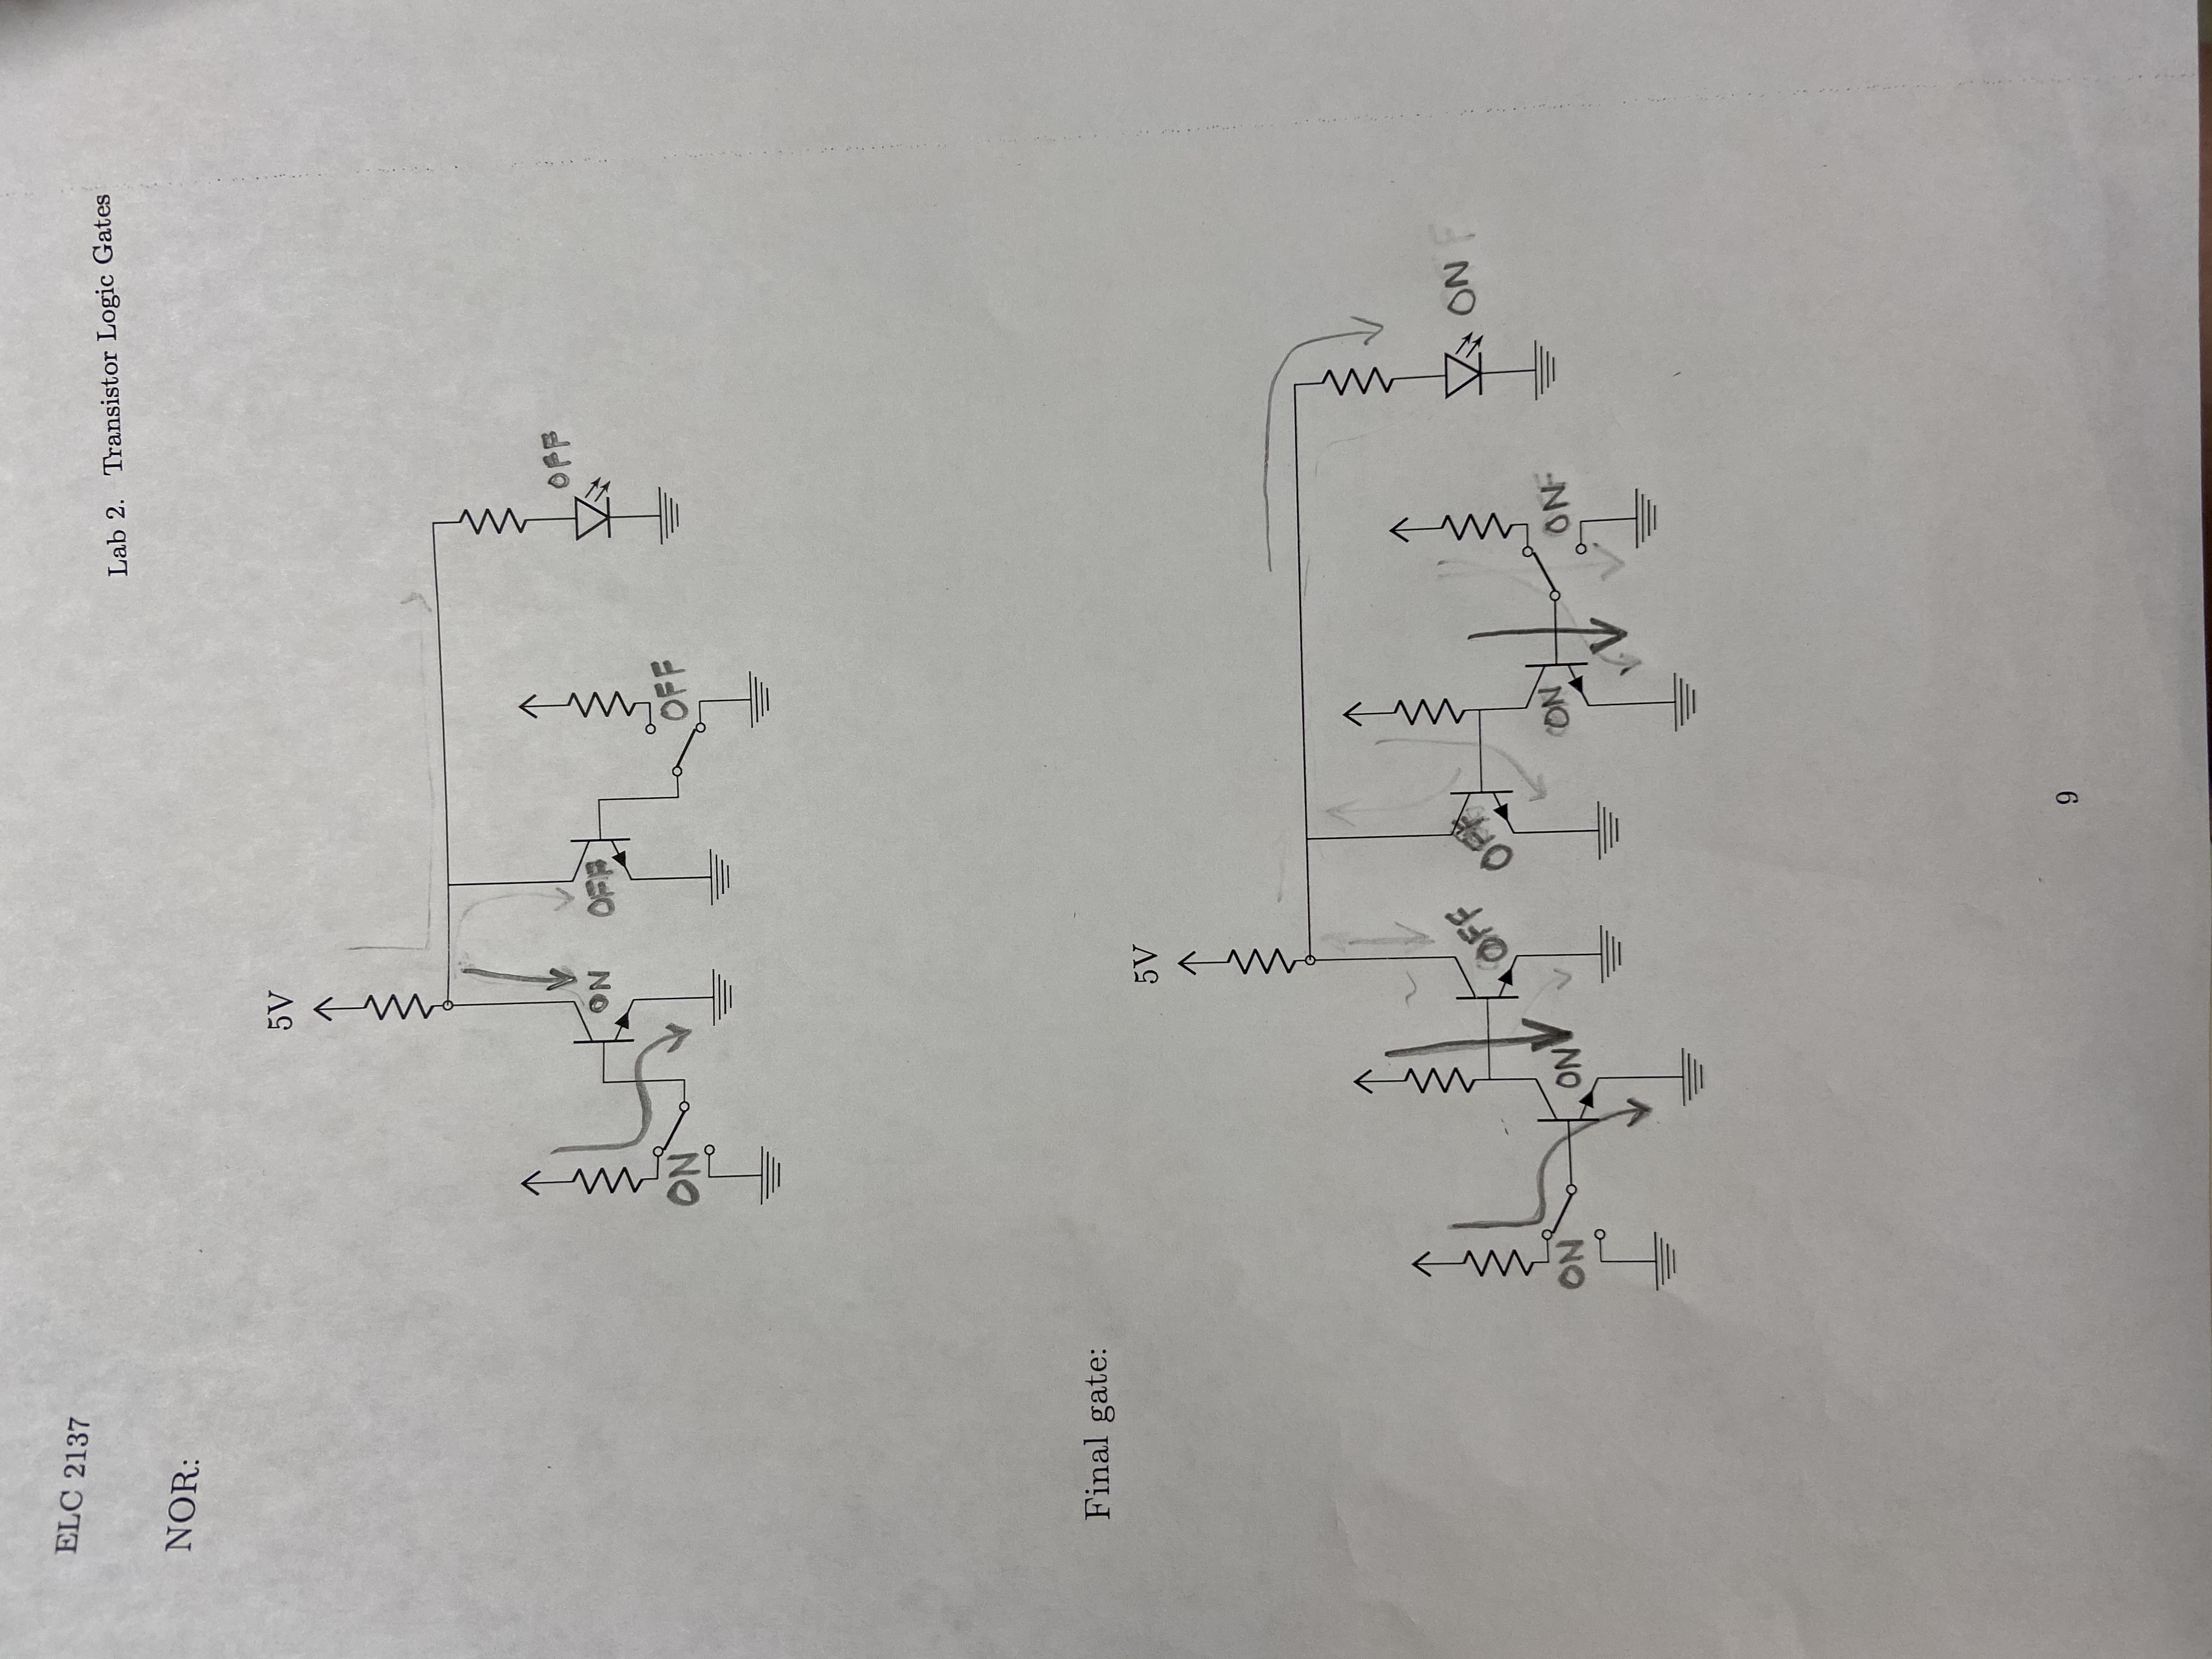 ELC 2137
Lab 2. Transistor Logic Gates
NOR:
5V
OFF
ON OFF
ON OFF
Final gate:
5V
ON
OFF OFF
ON ON ON ON
9